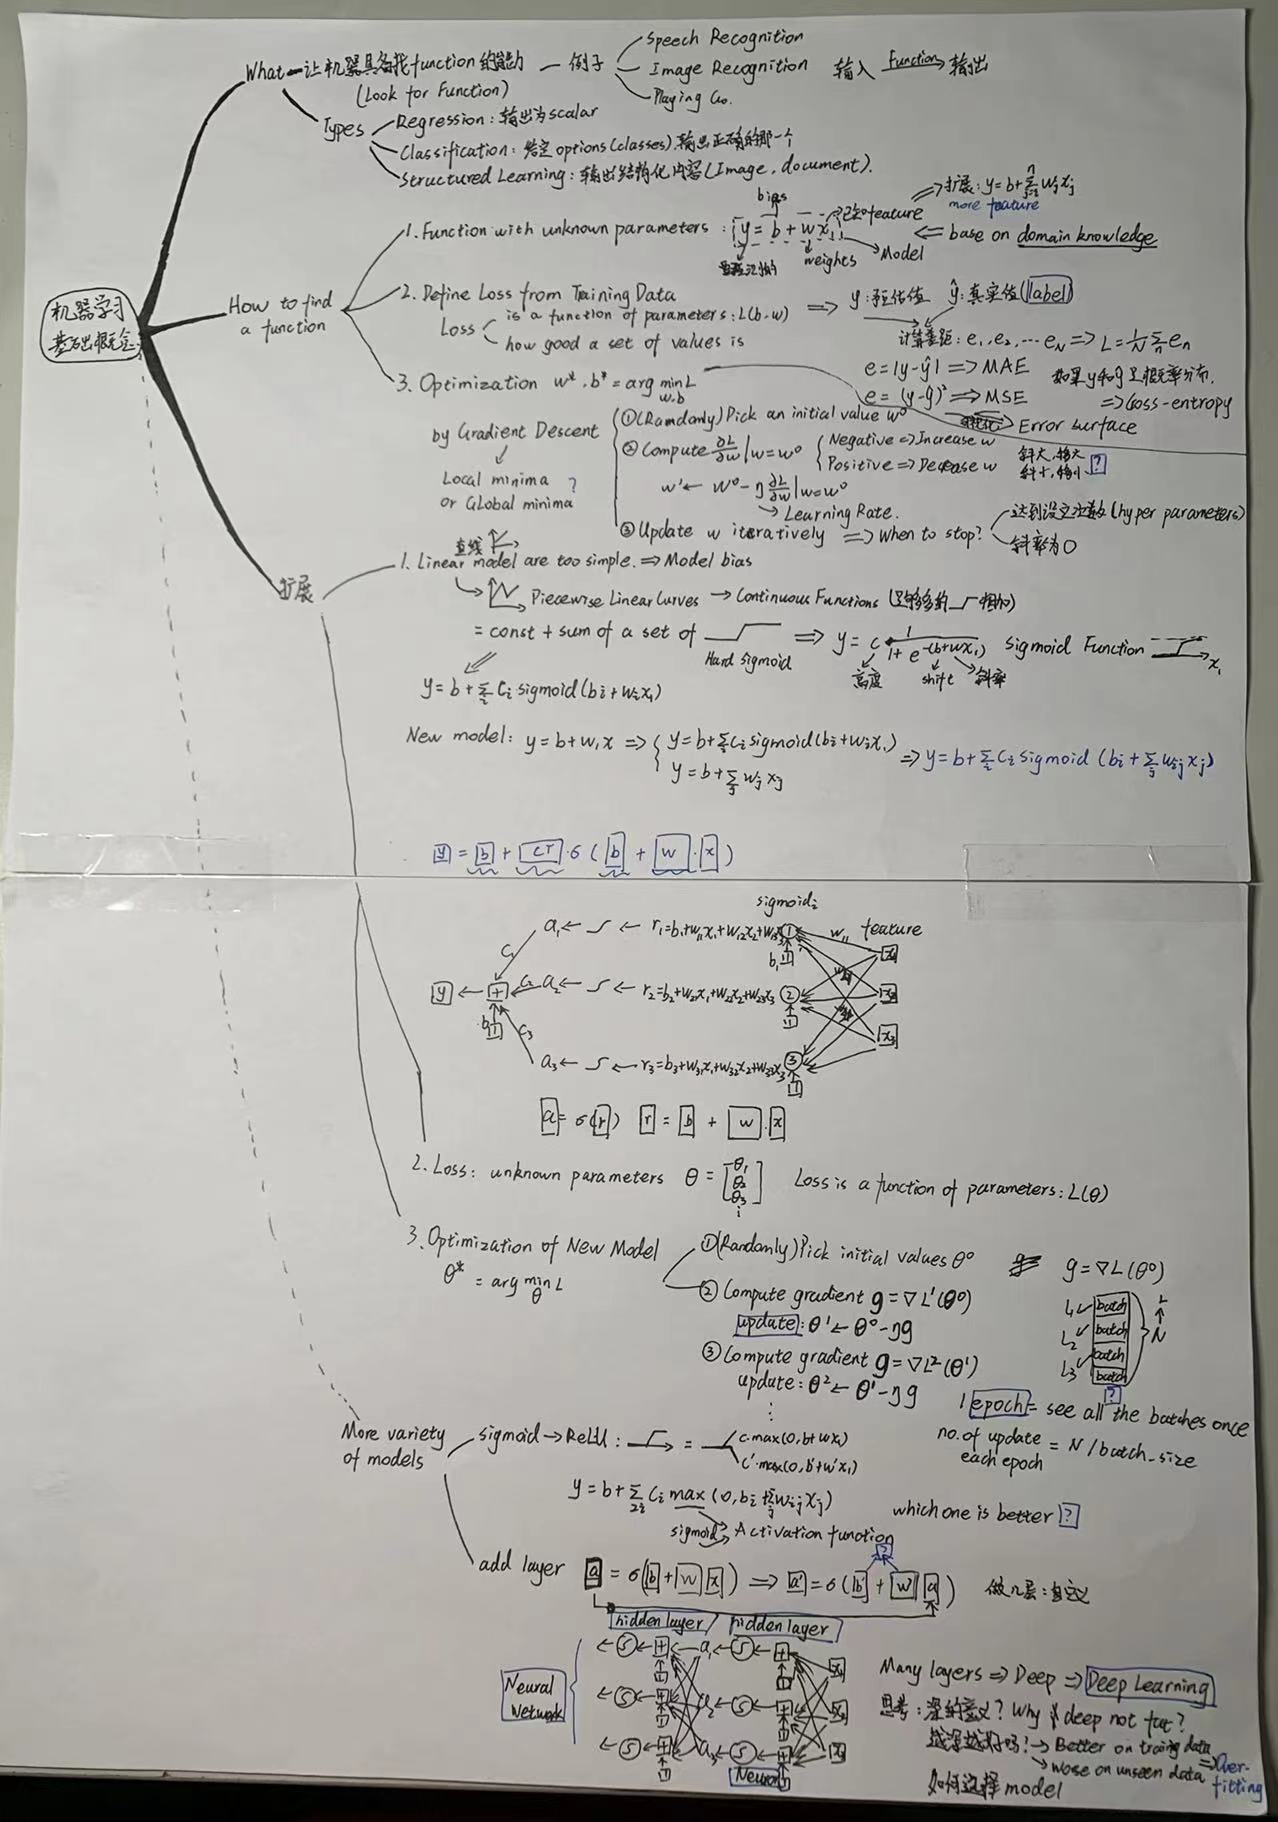 机器学习
基础概念
What — 让机器具备找function的能力 — 例子
(Look for Function)
Speech Recognition
Image Recognition
Playing Go.
输入 Function→ 输出
Types
Regression: 输出为scalar
Classification: 给定options(classes),输出正确的那一个
Structured Learning: 输出结构化内容(Image, document).
How to find
a function
1. Function with unknown parameters: y = b + wx₁
bias
已知feature
weights
Model
⇒扩展: y=b+Σwⱼxⱼ
more feature
⇐ base on domain knowledge
2. Define Loss from Training Data
Loss
is a function of parameters: L(b,w)
how good a set of values is
⇒ y: 预估值 ŷ: 真实值(label)
计算差距: e₁, e₂, ... e_N ⇒ L = 1/N Σ eₙ
e = |y-ŷ| ⇒ MAE
e = (y-ŷ)² ⇒ MSE
如果y和ŷ是概率分布.
⇒ Coss-entropy
Error surface
3. Optimization w*, b* = arg min L
w,b
by Gradient Descent
Local minima
or Global minima
?
①(Ramdomly) Pick an initial value w⁰
② Compute ∂L/∂w |w=w⁰
Negative ⇒ Increase w
Positive ⇒ Decrease w
?
w' ← w⁰ - η ∂L/∂w |w=w⁰
→ Learning Rate.
③ Update w iteratively ⇒ When to stop?
达到设定次数(hyper parameters)
斜率为0
扩展
直线
1. Linear model are too simple. ⇒ Model bias
Piecewise Linear Curves → Continuous Functions (足够多的 相加)
= const + sum of a set of
Hard sigmoid
⇒ y = c 1/(1+e^-(b+wx₁)) Sigmoid Function
x₁
高度 shift 斜率
y = b + Σ cᵢ sigmoid(bᵢ + wᵢx₁)
New model: y = b + w₁x ⇒
y = b + Σcᵢ sigmoid(bᵢ+wᵢx₁)
y = b + Σ wⱼxⱼ
⇒ y = b + Σ cᵢ sigmoid (bᵢ + Σ wᵢⱼxⱼ)
y = b + cᵀ·σ( b + w·x )
sigmoidᵢ
feature
a₁ ← r₁=b₁+w₁₁x₁+w₁₂x₂+w₁₃x₃ 1 w₁₁ x₁
c₁
b₁ 1
y ← + c₂ a₂ ← r₂=b₂+w₂₁x₁+w₂₂x₂+w₂₃x₃ 2 x₂
b 1 c₃
1
a₃ ← r₃=b₃+w₃₁x₁+w₃₂x₂+w₃₃x₃ 3 x₃
1
a = σ(r) r = b + w·x
2. Loss: unknown parameters θ = [θ₁ θ₂ θ₃ ⋮] Loss is a function of parameters: L(θ)
3. Optimization of New Model
θ* = arg min L
θ
①(Randomly) Pick initial values θ⁰
g = ∇L(θ⁰)
② Compute gradient g = ∇L'(θ⁰)
update: θ' ← θ⁰ - ηg
③ Compute gradient g = ∇L²(θ')
update: θ² ← θ' - ηg
⋮
L₁ batch
L₂ batch
L₃ batch
batch
L
↑
N
?
1 epoch = see all the batches once
no. of update
each epoch = N / batch_size
More variety
of models
sigmoid → ReLU: =
c·max(0, b+wx₁)
c'·max(0, b'+w'x₁)
y = b + Σ cᵢ max (0, bᵢ + Σwᵢⱼxⱼ)
2i
sigmoid → Activation function
which one is better ?
add layer a = σ(b+w x) ⇒ a' = σ(b' + w' a)
?
做几层: 自定义
hidden layer hidden layer
Neural
Network
a₁
a₂
a₃
x₁
x₂
x₃
Neuron
Many layers ⇒ Deep ⇒ Deep Learning
思考: 深的意义? Why deep not fat?
越深越好吗? → Better on traing data
→ wose on unseen data ⇒ Over-
fitting
如何选择model